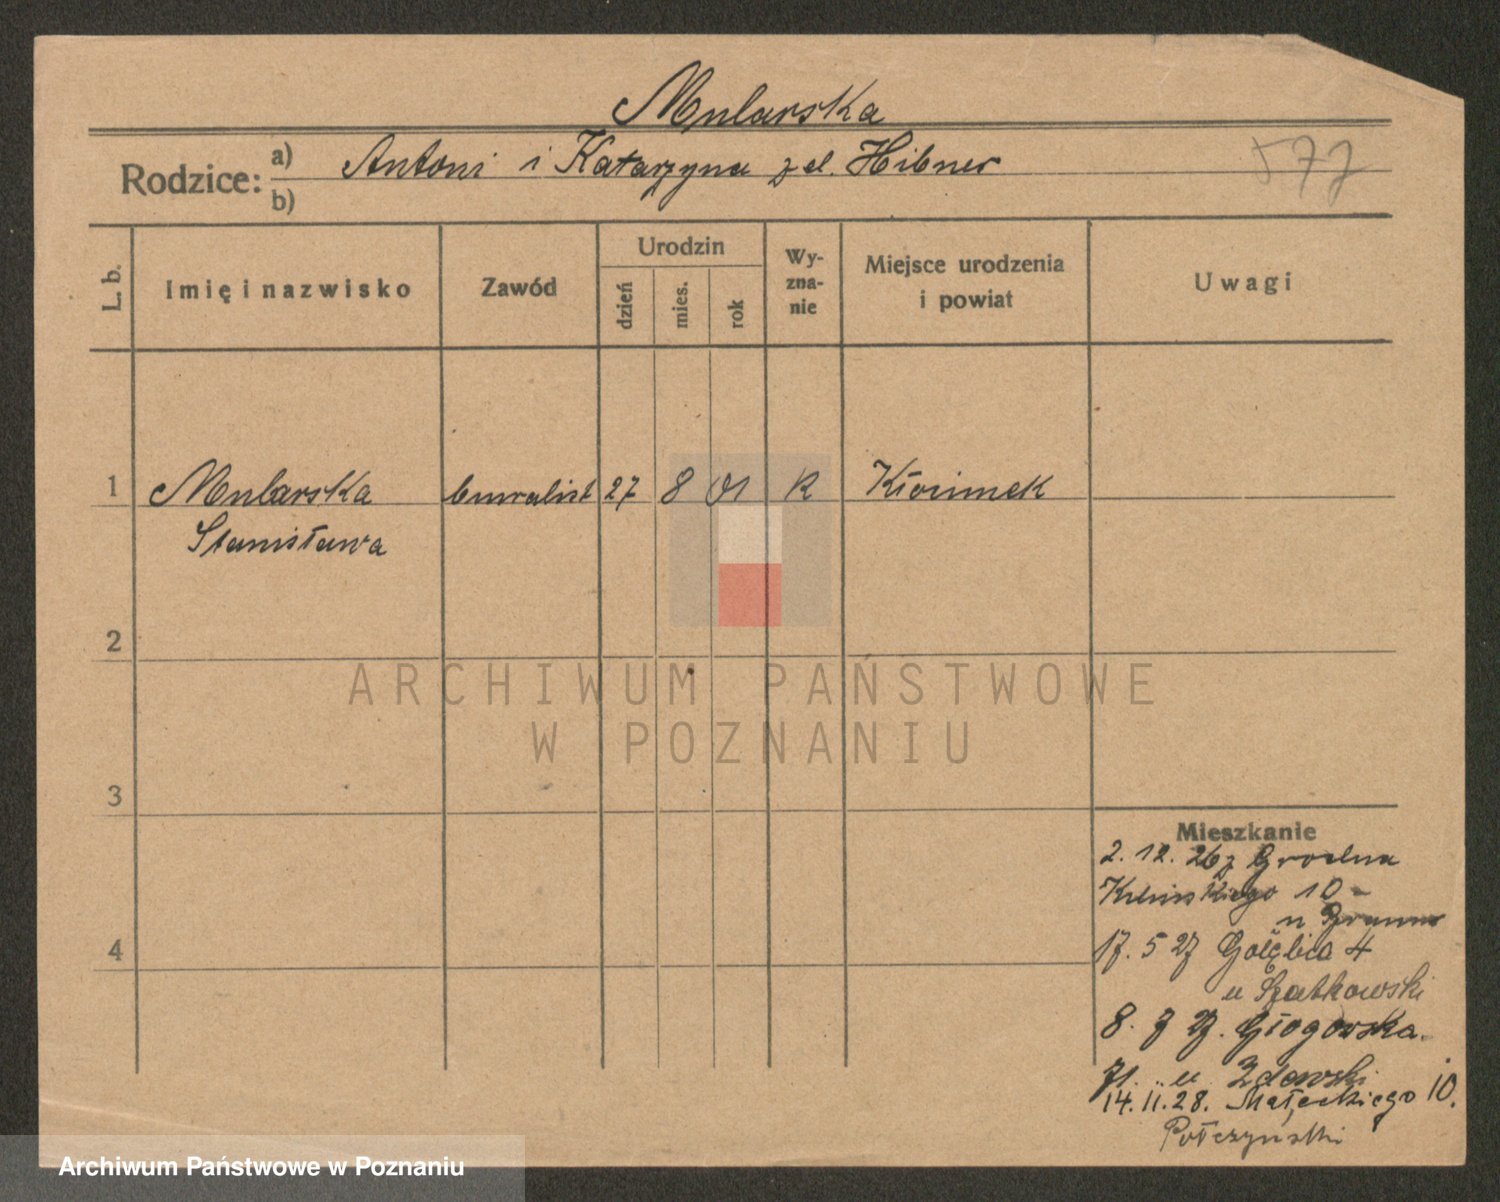 Mularska
Rodzice: a) Antoni i Katarzyna z d. Hibner
b)
577
L. b.
Imię i nazwisko
Zawód
Urodzin
dzień
mies.
rok
Wy-
zna-
nie
Miejsce urodzenia
i powiat
Uwagi
1 Mularska 27 8 01 R
Stanisława
2
3
4
Mieszkanie
2. 12. 26 z Grodna
10 -
17. 5 27 Gołębia 4
u Szatkowski
8. 7 27. Głogowska
71. u
14. 11. 28. Małeckiego 10.
Połczyński
ARCHIWUM PAŃSTWOWE
W POZNANIU
Archiwum Państwowe w Poznaniu